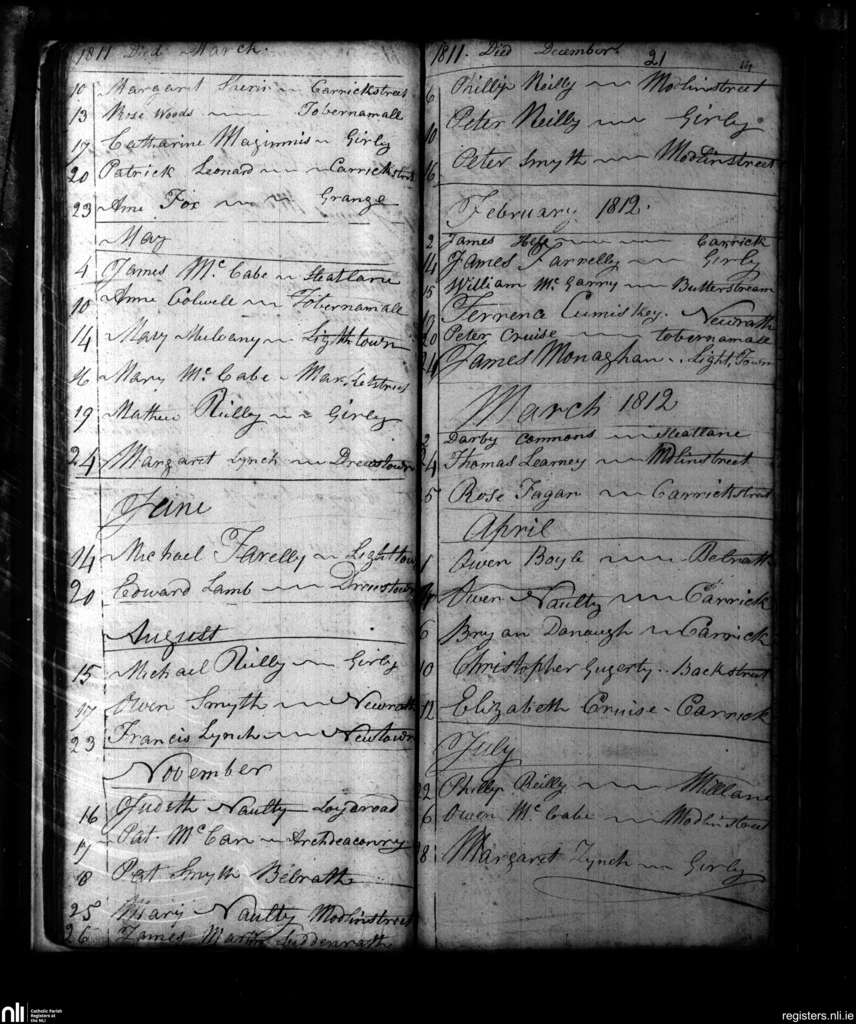 1811 Died March.
10 Margaret Sheri Carrickstreet
13 Rose Woods Tobernamall
17 Catharine Maginnis Girly
20 Patrick Leonard Carrickstreet
23 Anne Fox Grange
May
4 James Mc Cabe Meatlane
10 Anne Colwell Tobernamall
14 Mary Mulvany Lighttown
16 Mary Mc Cabe Marketstreet
19 Mathew Reilly Girly
24 Margaret Lynch Drewstown
June
14 Michael Farelly Lighttown
20 Edward Lamb Drewstown
August
15 Michael Reilly Girly
17 Owen Smyth Newrath
23 Francis Lynch Newtown
November
16 Judith Naulty Loydroad
17 Pat. Mc Can Archdeaconry
18 Pat Smyth Belrath
25 Mary Naulty Modlinstreet
26 James Martin
1811. Died December 21
6 Phillip Reilly Modlinstreet
10 Peter Reilly Girly
16 Peter Smyth Modlinstreet
February 1812.
2 James Carrick
14 James Farrelly Girly
15 William Mc Garry Butterstream
19 Terrence Cumiskey. Newrath
20 Peter Cruise tobernamall
24 James Monaghan Light,Town
March 1812
2 Darby Commons Meatlane
4 Thomas Learney Modlinstreet
5 Rose Fagan Carrickstreet
April
1 Owen Boyle Belrath
Owen Naulty Carrick
6 Bryan Danaugh Carrick
10 Christopher Gugerty Backstreet
12 Elizabeth Cruise Carrick
July
2 Phillip Reilly Millane
6 Owen Mc Cabe Modlinstreet
8 Margaret Lynch Girly
nli Catholic Parish
Registers at
the NLI
registers.nli.ie